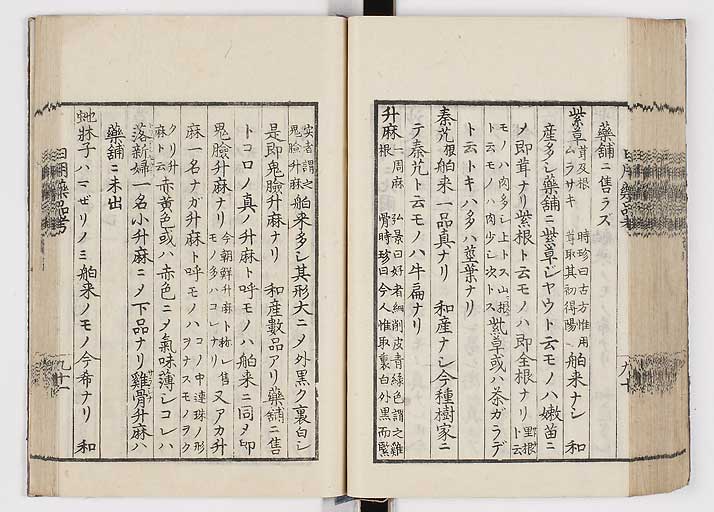 藥舗ニ售ラズ
紫草 茸及根 ムラサキ 時珍曰古方惟用茸取其初得陽 舶来ナシ 和
産多シ藥舗ニ紫草ジヤウト云モノハ嫩苗ニ
ノ即茸ナリ紫根ト云モノハ即全根ナリ野根ト云
モノハ肉多シ上トス山根ト云モノハ肉少シ次トス紫草或ハ茶ガラデ
ト云トキハ多ハ莖葉ナリ
秦艽 根 舶来一品真ナリ 和産ナシ今種樹家ニ
テ秦艽ト云モノハ牛扁ナリ
升麻 一周麻 根 弘景曰好者細削皮青緑色謂之雞骨時珍曰今人惟取裏白外黒而緊
实者謂之鬼臉升麻 舶来多シ其形大ニメ外黒ク裏白シ
是即鬼臉升麻ナリ 和産數品アリ藥舗ニ售
トコロノ真ノ升麻ト呼モノハ舶来ニ同メ即
鬼臉升麻ナリ 今朝鮮升麻ト称シ售モノ多ハコレナリ 又アカ升
麻一名ナガ升麻ト呼モノハ コノ中連珠ノ形ヲナスモノヲク
クリ升麻ト云 赤黄色或ハ赤色ニメ氣味薄シコレハ
落新婦一名小升麻ニメ下品ナリ雞骨升麻ハ
藥舗ニ未出
蛇牀子 ハマゼリノミ 舶来ノモノ今希ナリ 和
日用藥品考
九十
日用藥品考
九十一